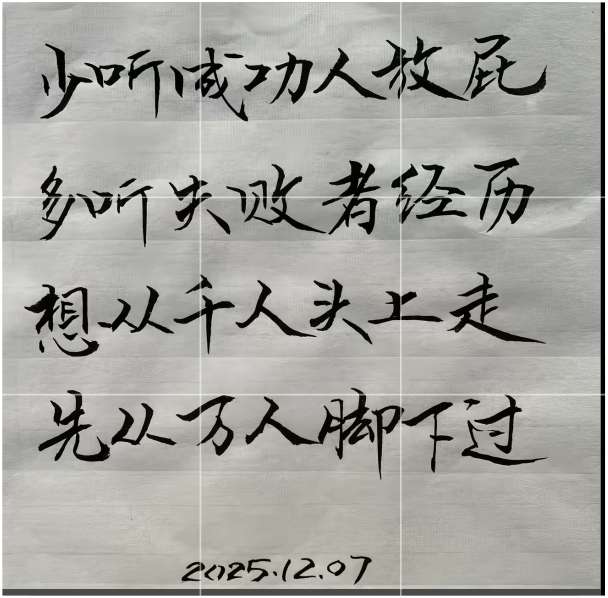 少听成功人放屁
多听失败者经历
想从千人头上走
先从万人脚下过
2025.12.07